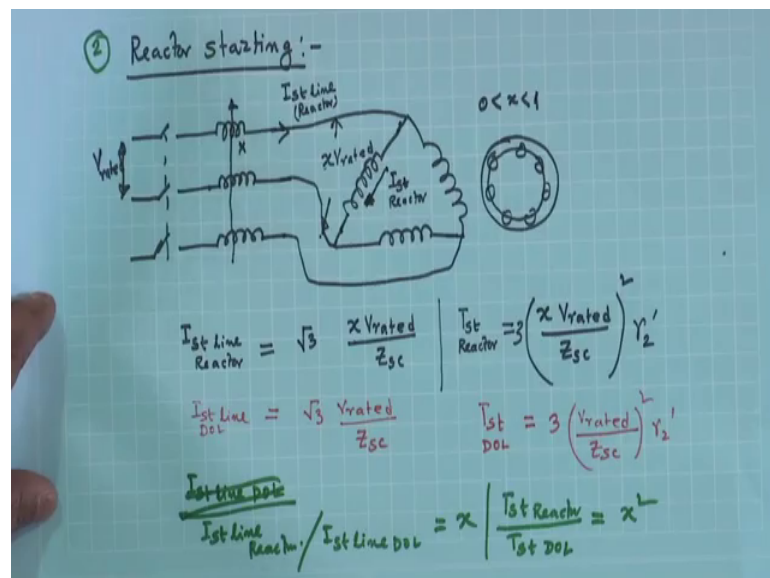 ② Reactor starting:-
Ist line
(Reactor)
0 < x < 1
Vrated
x
xVrated
Ist
Reactor
Ist line Reactor = √3 x Vrated / Zsc | Tst Reactor = 3 (x Vrated / Zsc)² r₂'
Ist line DOL = √3 Vrated / Zsc Tst DOL = 3 (Vrated / Zsc)² r₂'
Ist line DOL
Ist line Reactor. / Ist line DOL = x | Tst Reactor / Tst DOL = x²